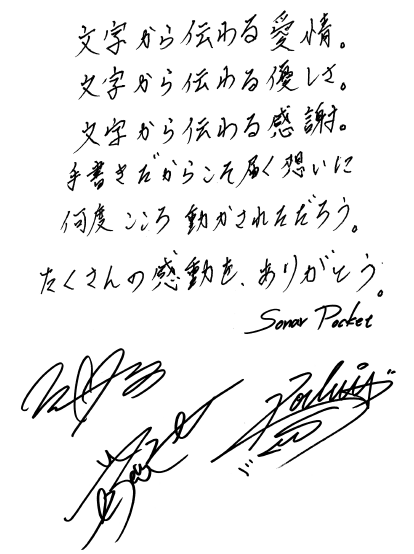 文字から伝わる愛情。
文字から伝わる優しさ。
文字から伝わる感謝。
手書きだからこそ届く想いに
何度こころ動かされただろう。
たくさんの感動を、ありがとう。
Sonar Pocket